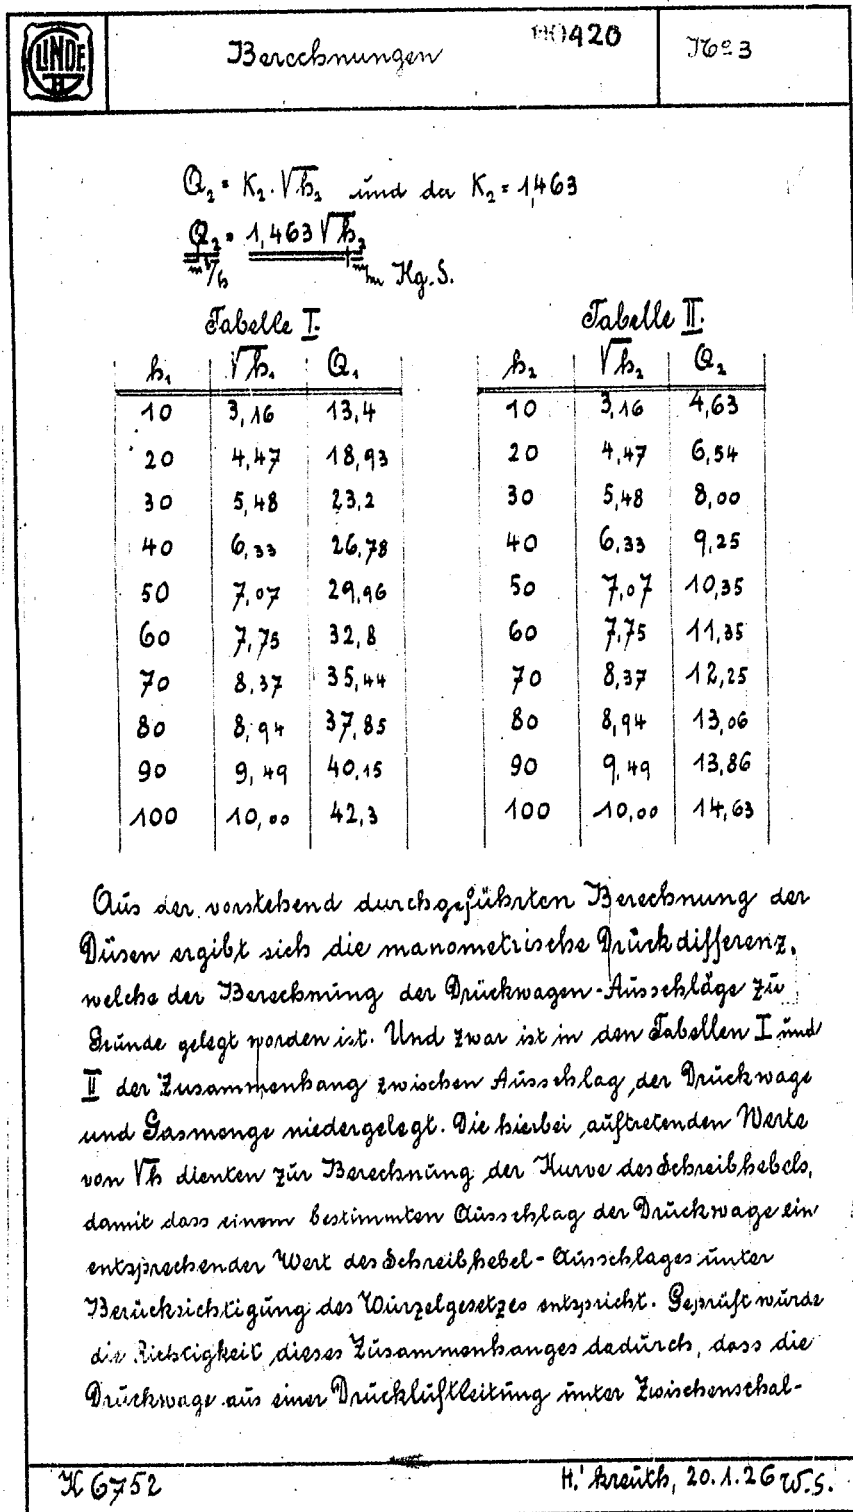 LINDE
Berechnungen
00420
No 3
Q₂ = K₂ · √h₂ und da K₂ = 1,463
Q₂ = 1,463 √h₂
m³/h mm Hg. S.
Tabelle I.
h₁ √h₁ Q₁
10 3,16 13,4
20 4,47 18,93
30 5,48 23,2
40 6,33 26,78
50 7,07 29,96
60 7,75 32,8
70 8,37 35,44
80 8,94 37,85
90 9,49 40,15
100 10,00 42,3
Tabelle II.
h₂ √h₂ Q₂
10 3,16 4,63
20 4,47 6,54
30 5,48 8,00
40 6,33 9,25
50 7,07 10,35
60 7,75 11,35
70 8,37 12,25
80 8,94 13,06
90 9,49 13,86
100 10,00 14,63
Aus der vorstehend durchgeführten Berechnung der
Düsen ergibt sich die manometrische Druckdifferenz,
welche der Berechnung der Druckwagen-Ausschläge zu
Grunde gelegt worden ist. Und zwar ist in den Tabellen I und
II der Zusammenhang zwischen Ausschlag der Druckwage
und Gasmenge niedergelegt. Die hierbei auftretenden Werte
von √h dienten zur Berechnung der Kurve des Schreibhebels,
damit dass einem bestimmten Ausschlag der Druckwage ein
entsprechender Wert des Schreibhebel-Ausschlages unter
Berücksichtigung des Wurzelgesetzes entspricht. Geprüft wurde
die Richtigkeit dieses Zusammenhanges dadurch, dass die
Druckwage aus einer Druckluftleitung unter Zwischenschal-
K 6752
H.'kreuth, 20.1.26 W.S.